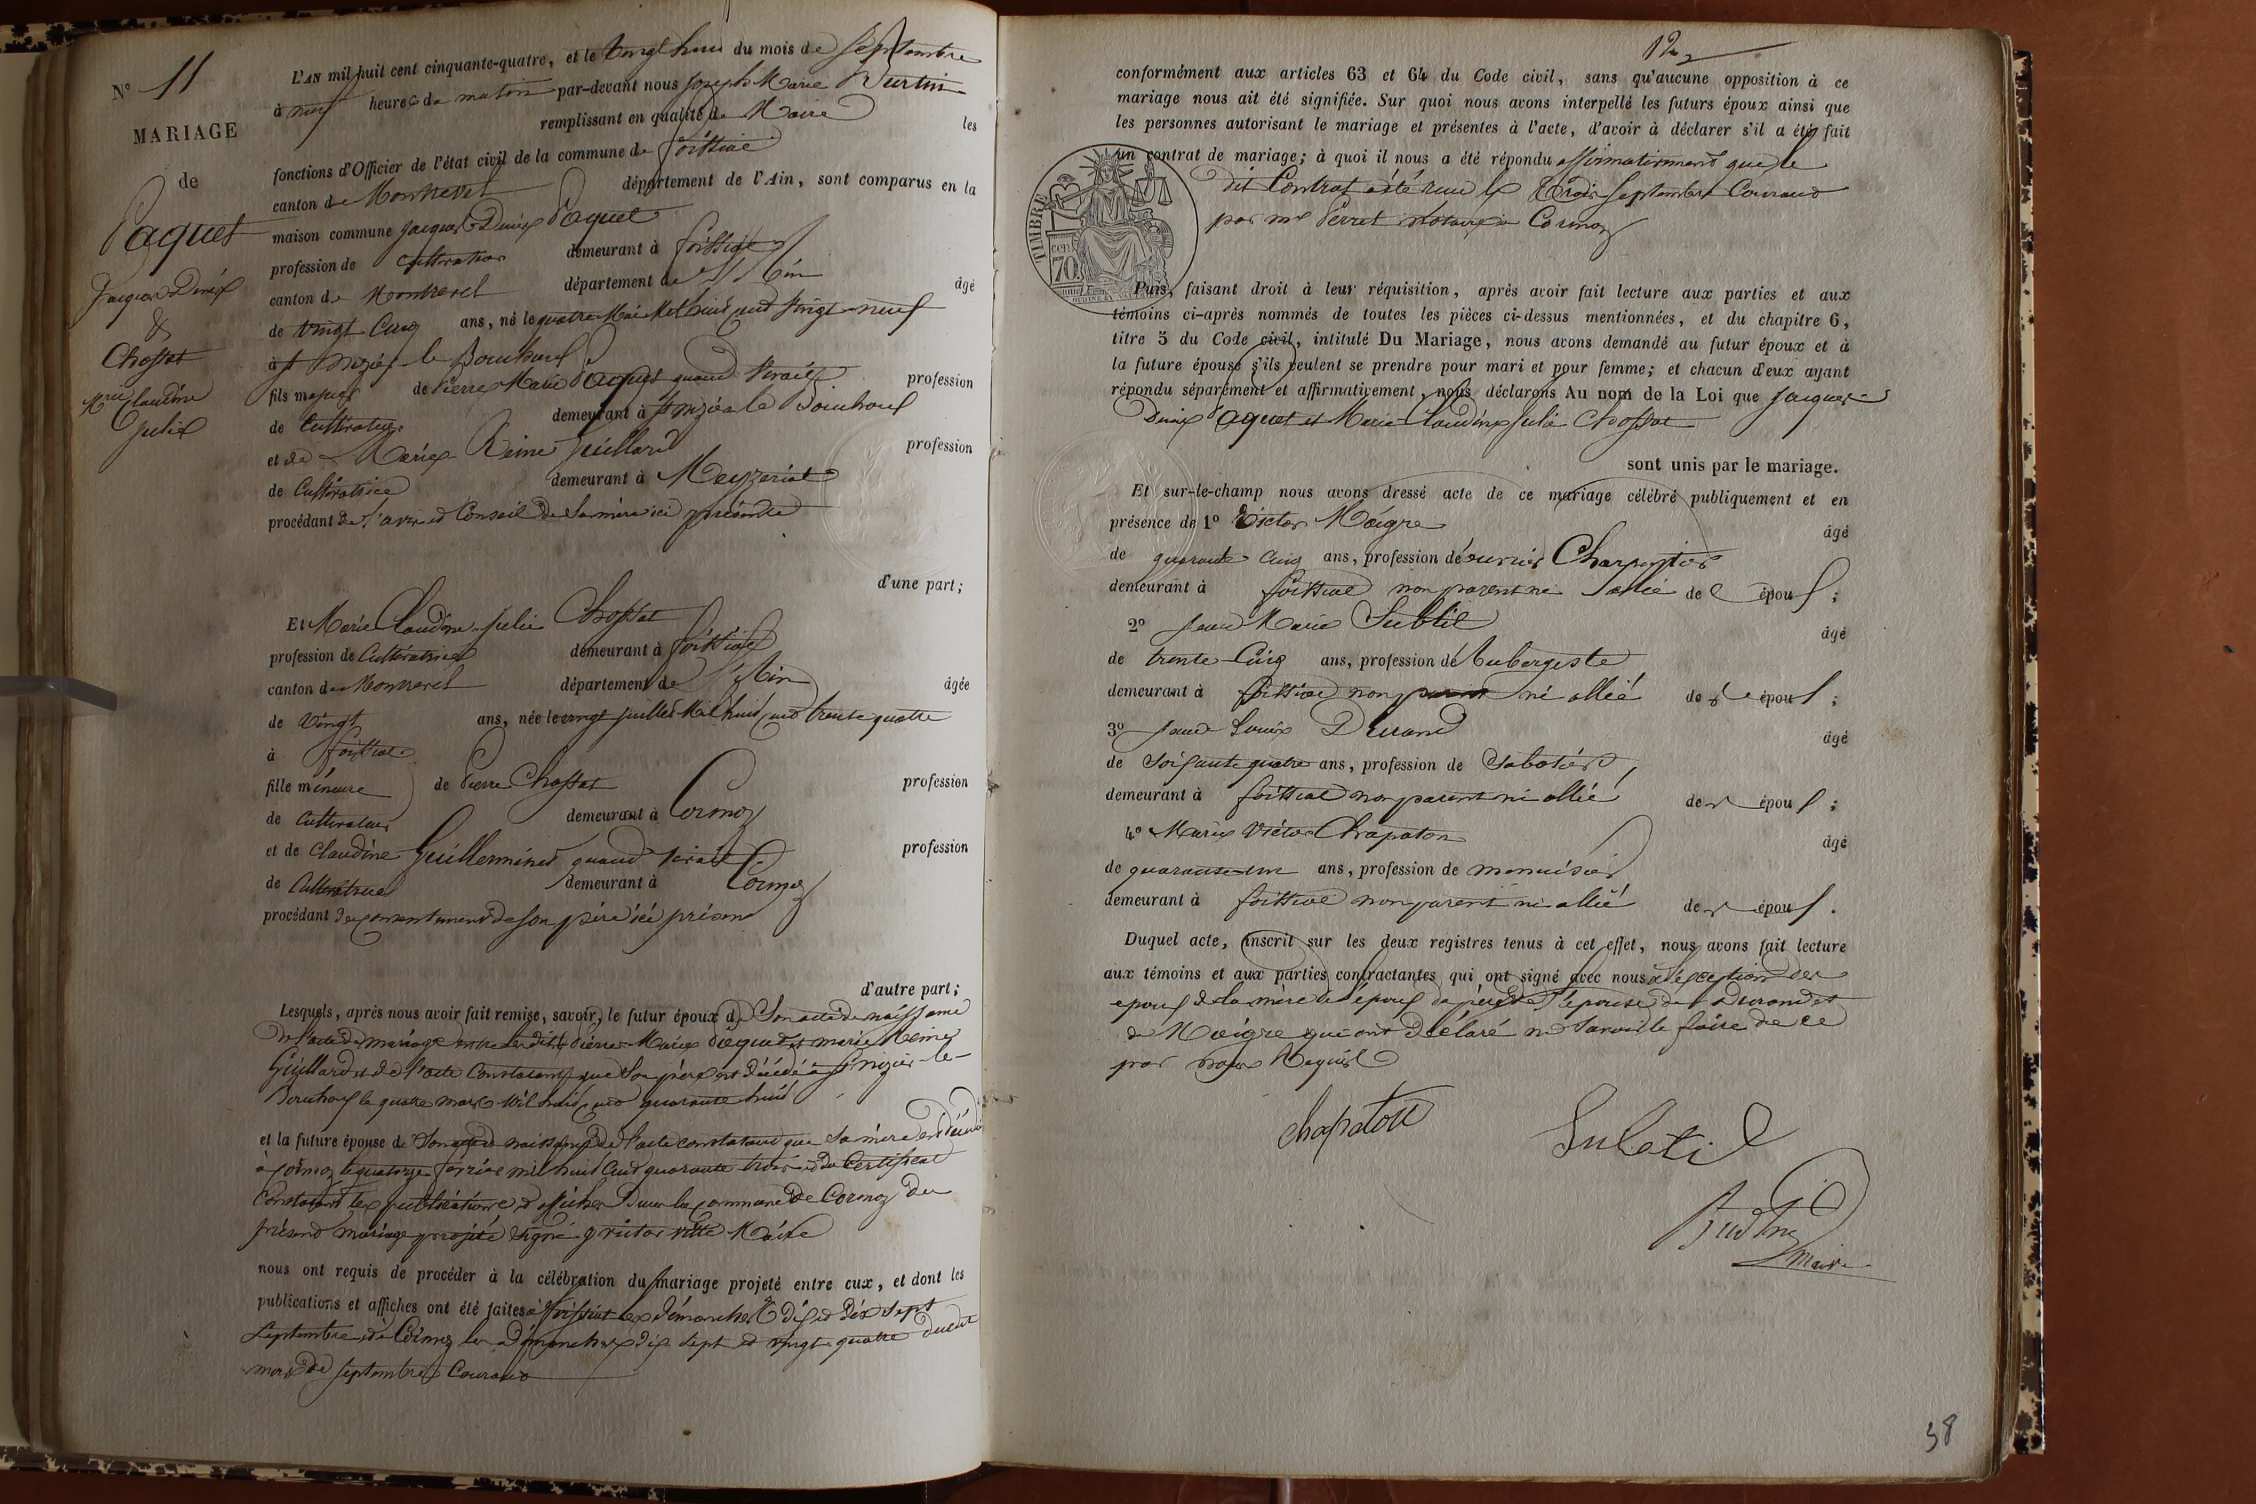 N° 11
MARIAGE
de
Paquet
Jacques Denis
&
Chossat
Mrie Claudine
Julie
L'AN mil huit cent cinquante-quatre, et le vingt huit du mois de Septembre
à neuf heures du matin par-devant nous Joseph Marie Burtin
remplissant en qualité de Maire les
fonctions d'Officier de l'état civil de la commune de foissiat
canton de Montrevel département de l'Ain, sont comparus en la
maison commune Jacques Denis Paquet
profession de Cultivateur demeurant à foissiat
canton de Montrevel département de l'Ain âgé
de vingt Cinq ans, né le quatre Mai Mil huit cent vingt-neuf
à St Nizier le Bouchoux
fils majeur de Pierre Marie Paquet quand vivait profession
de Cultivateur demeurant à St nizier le Bouchoux
et de Marie Reine Guillard profession
de Cultivatrice demeurant à Meyzeriat
procédant de l'avis et Conseil de Sa mère ici présente
d'une part;
Et Marie Claudine Julie Chossat
profession de Cultivatrice demeurant à foissiat
canton de Montrevel département de l'Ain âgée
de vingt ans, née le vingt juillet Mil huit cent trente quatre
à foissiat
fille mineure de Pierre Chossat profession
de Cultivateur demeurant à Cormoz
et de Claudine Guillerminet quand vivait profession
de Cultivatrice demeurant à Cormoz
procédant du consentement de son père ici présent
d'autre part;
Lesquels, après nous avoir fait remise, savoir, le futur époux de Son acte de naissance
de l'acte de mariage entre lesdits Pierre Marie Paquet et marie Reine
Guillard et de l'acte Constatant que Son père est décédé à St nizier-le-
Bouchoux le quatre mars Mil huit cent quarante huit
et la future épouse de Son acte de naissance de l'acte constatant que Sa mère est décédée
à Cormoz le quatorze février mil huit Cent quarante trois et du Certificat
Constatant les publications et affiches dans la commune de Cormoz du
présent mariage projeté Signé maire
nous ont requis de procéder à la célébration du mariage projeté entre eux, et dont les
publications et affiches ont été faites à foissiat les dimanches Dix et Dix sept
Septembre et à Cormoz les Dimanches dix sept et vingt quatre dudit
mois de septembre Courant
conformément aux articles 63 et 64 du Code civil, sans qu'aucune opposition à ce
mariage nous ait été signifiée. Sur quoi nous avons interpellé les futurs époux ainsi que
les personnes autorisant le mariage et présentes à l'acte, d'avoir à déclarer s'il a été fait
un contrat de mariage; à quoi il nous a été répondu affirmativement que le
dit Contrat a été reçu le Trois Septembre Courant
par me Perret Notaire à Cormoz
TIMBRE
70
cen
Puis, faisant droit à leur réquisition, après avoir fait lecture aux parties et aux
témoins ci-après nommés de toutes les pièces ci-dessus mentionnées, et du chapitre 6,
titre 5 du Code civil, intitulé Du Mariage, nous avons demandé au futur époux et à
la future épouse s'ils veulent se prendre pour mari et pour femme; et chacun d'eux ayant
répondu séparément et affirmativement, nous déclarons Au nom de la Loi que Jacques
Denis Paquet et Marie Claudine Julie Chossat
sont unis par le mariage.
Et sur-le-champ nous avons dressé acte de ce mariage célébré publiquement et en
présence de 1° Victor Maigre âgé
de quarante Cinq ans, profession d'ouvrier Charpentier
demeurant à foissiat non parent ni allié de l'époux;
2° Jean Marie Subtil âgé
de trente Cinq ans, profession d'Aubergiste
demeurant à foissiat non parent ni allié de l'époux;
3° Jean Louis Durand âgé
de Soixante quatre ans, profession de Sabotier
demeurant à foissiat non parent ni allié de l'époux;
4° Marie Victor Chapaton âgé
de quarante-un ans, profession de menuisier
demeurant à foissiat non parent ni allié de l'époux.
Duquel acte, inscrit sur les deux registres tenus à cet effet, nous avons fait lecture
aux témoins et aux parties contractantes qui ont signé avec nous à l'exception des
époux de la mère de l'époux du père de l'épouse de Durand et
de Maigre qui ont déclaré ne Savoir le faire de ce
par nous Requis
chapaton
Subtil
Burtin
maire
38